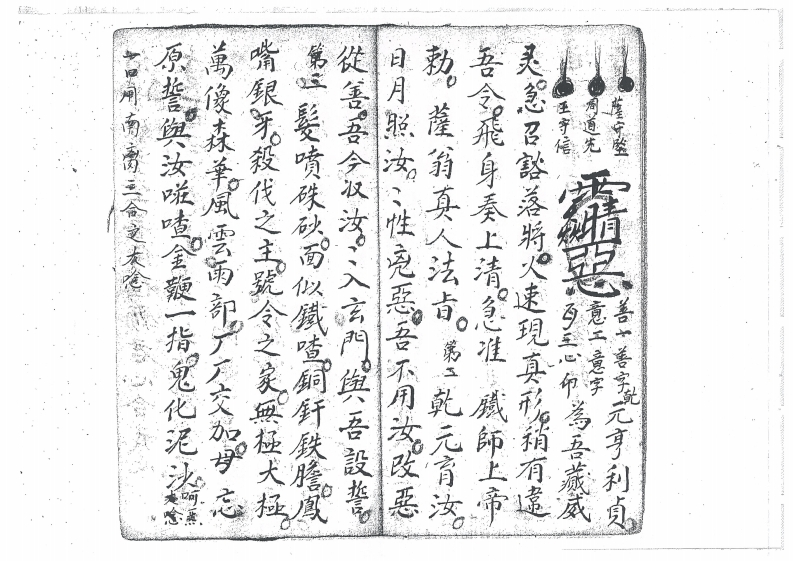 薩守堅
周道先
王守信
善 善字乾元亨利貞
意 意字 為吾藏威
心印
灵急召豁落將火速現真形稍有違
吾令飛身奏上清急准 鐵師上帝
勅 薩翁真人法旨 第二 乾元育汝
日月照汝汝性兇惡吾不用汝改惡
從善吾今収汝汝入玄門與吾設誓
第三 髮噴硃砂面似鐵喳銅釬鉄膽鳳
嘴銀牙殺伐之主號令之家無極大極
萬像森華風雲雨部厂厂交加毋忘
原誓與汝啀喳金鞭一指鬼化泥沙
用南离三合